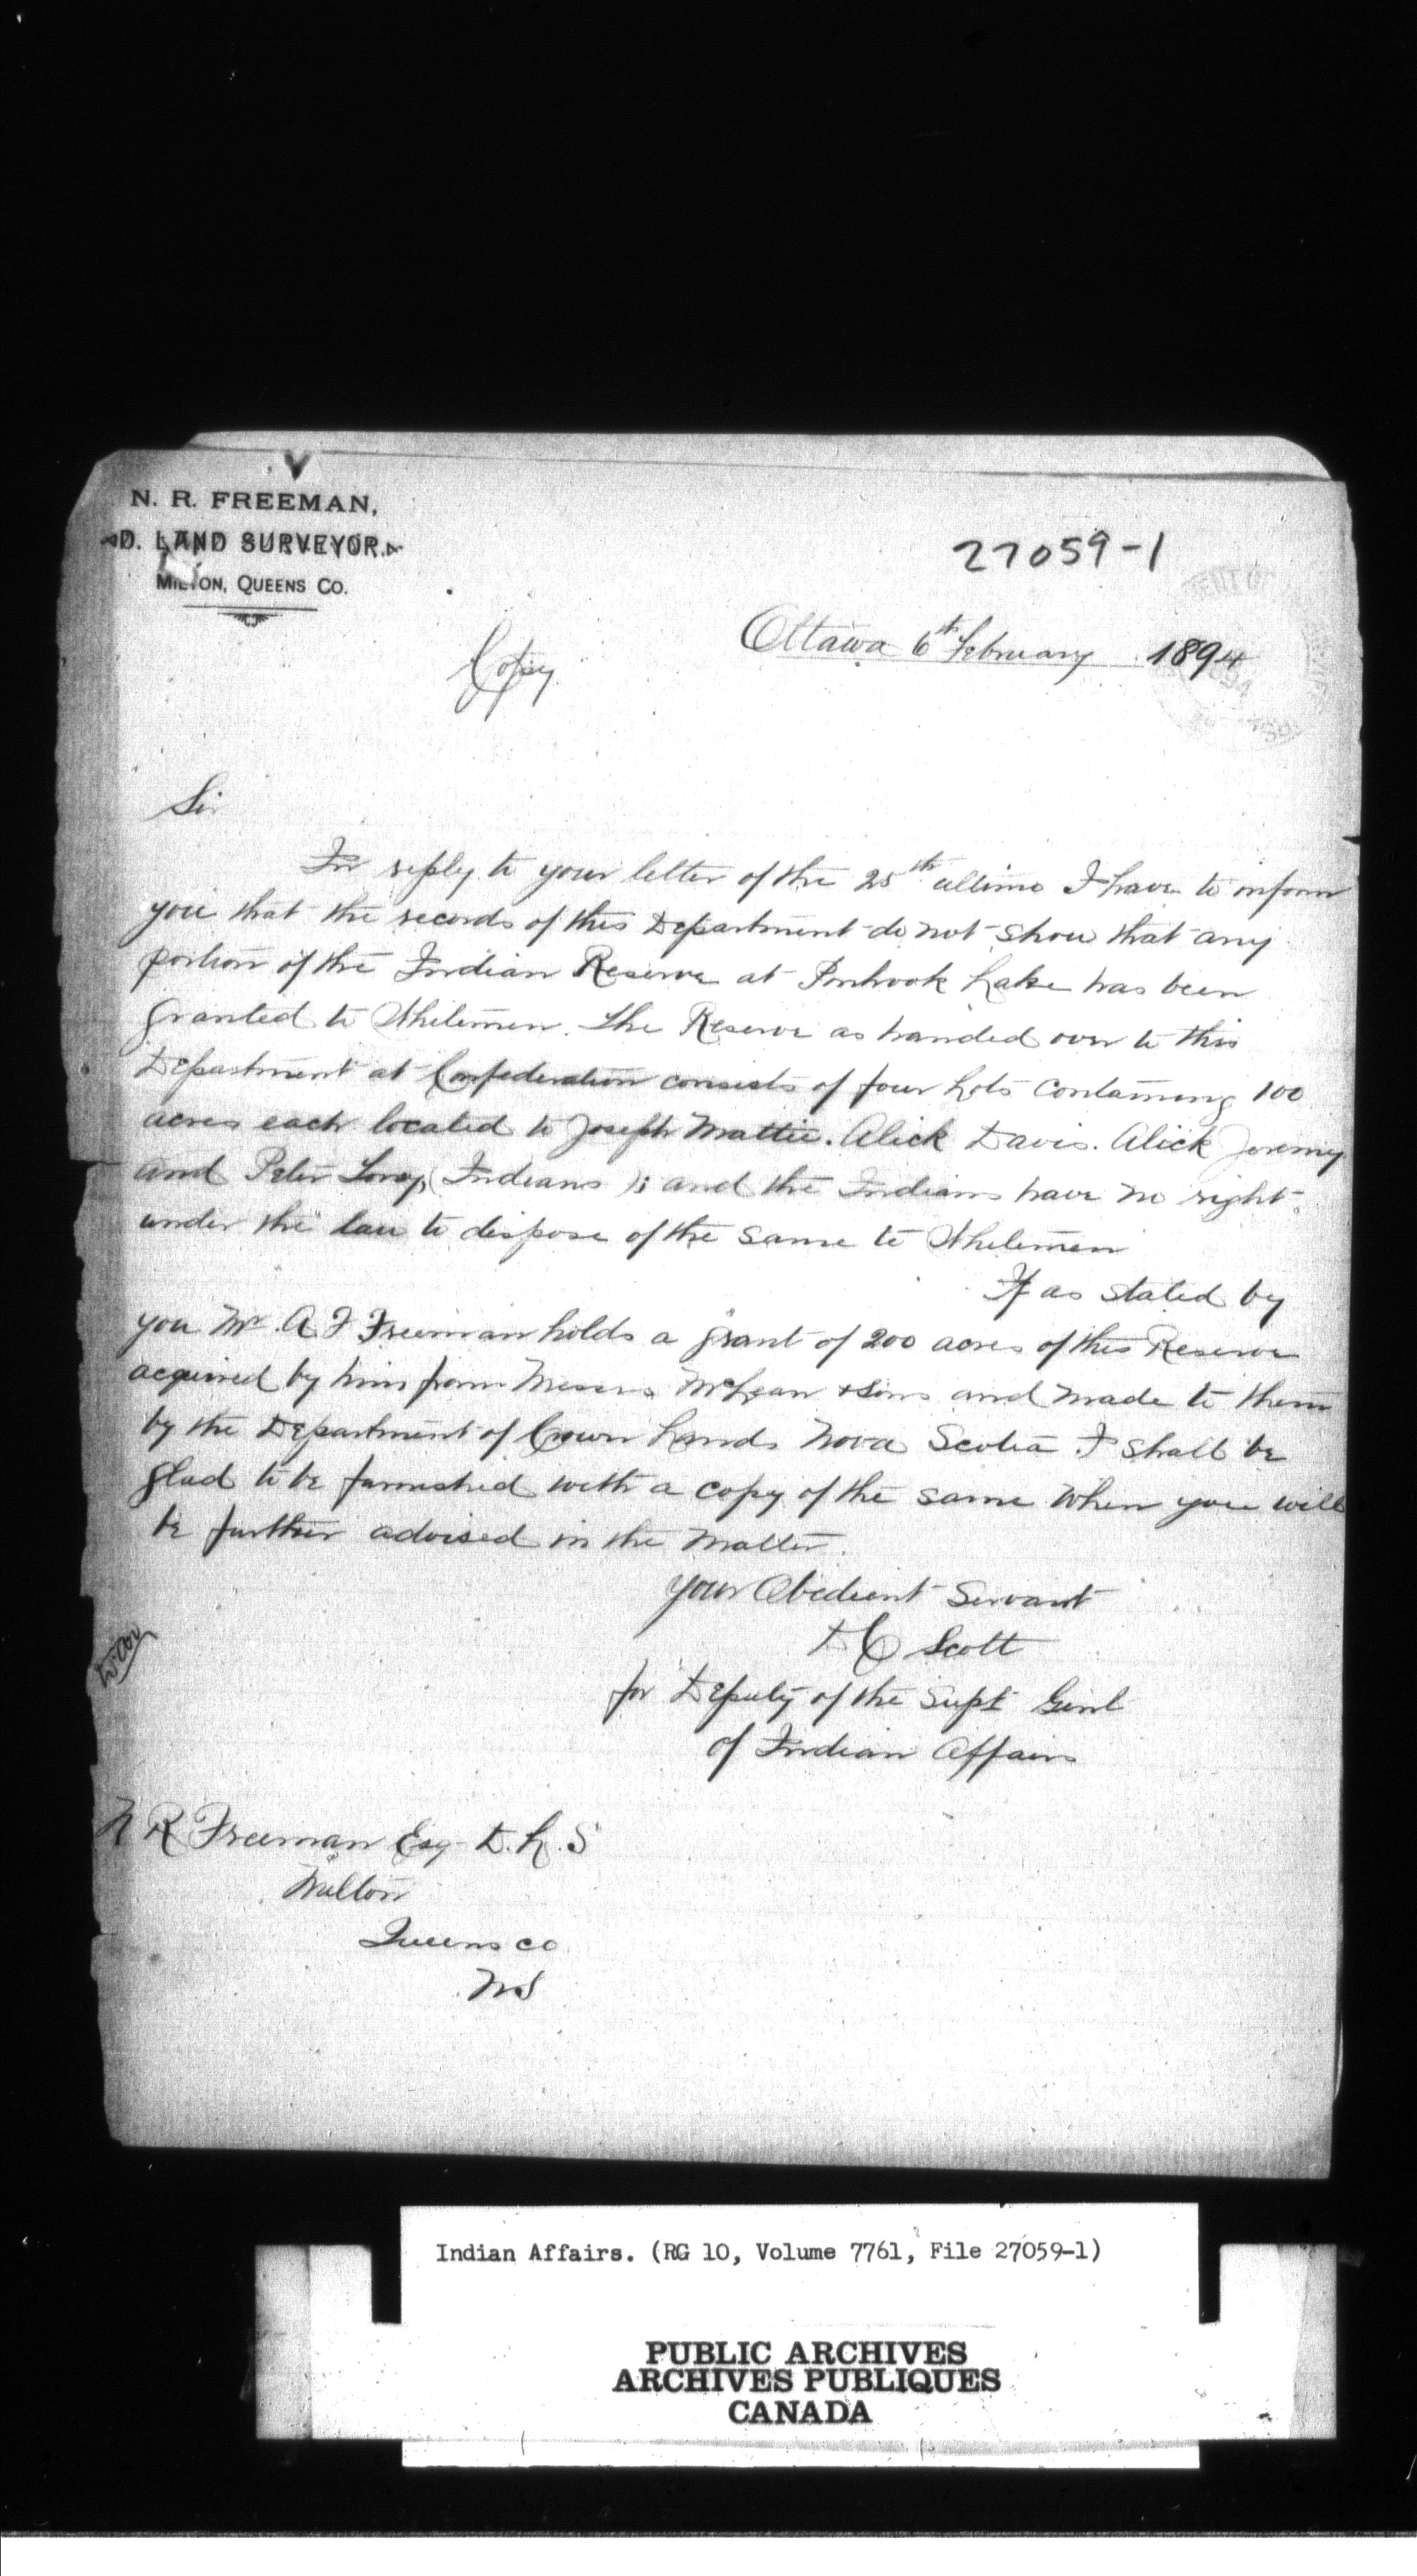 N. R. FREEMAN,
D. LAND SURVEYOR.
MILTON, QUEENS CO.
27059-1
Ottawa 6th February 1894
Copy
Sir
In reply to your letter of the 25th ultimo I have to inform
you that the records of this Department do not show that any
portion of the Indian Reserve at Ponhook Lake has been
granted to Whitemen. The Reserve as handed over to this
Department at Confederation consists of four Lots containing 100
acres each located to Joseph Mattie. Alick Davis. Alick Jeremy
and Peter (Indians); and the Indians have no right
under the law to dispose of the same to Whitemen
If as stated by
you Mr. A F Freeman holds a grant of 200 acres of this Reserve
acquired by him from Messrs McLean & Sons and made to them
by the Department of Crown Lands Nova Scotia I shall be
glad to be furnished with a copy of the same when you will
be further advised in the matter.
Your Obedient Servant
D C Scott
for Deputy of the Supt Genl
of Indian Affairs
N R Freeman Esq D. L. S
Milton
Queens co
NS
Indian Affairs. (RG 10, Volume 7761, File 27059-1)
PUBLIC ARCHIVES
ARCHIVES PUBLIQUES
CANADA